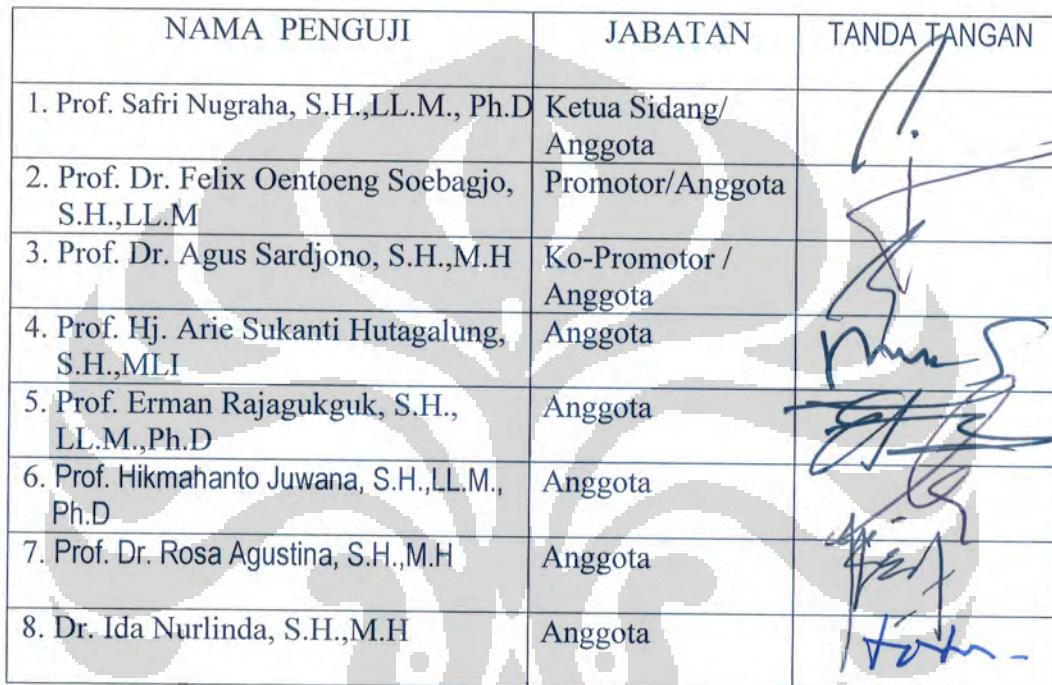 NAMA PENGUJI JABATAN TANDA TANGAN
1. Prof. Safri Nugraha, S.H.,LL.M., Ph.D Ketua Sidang/
Anggota
2. Prof. Dr. Felix Oentoeng Soebagjo, Promotor/Anggota
S.H.,LL.M
3. Prof. Dr. Agus Sardjono, S.H.,M.H Ko-Promotor /
Anggota
4. Prof. Hj. Arie Sukanti Hutagalung, Anggota
S.H.,MLI
5. Prof. Erman Rajagukguk, S.H., Anggota
LL.M.,Ph.D
6. Prof. Hikmahanto Juwana, S.H.,LL.M., Anggota
Ph.D
7. Prof. Dr. Rosa Agustina, S.H.,M.H Anggota
8. Dr. Ida Nurlinda, S.H.,M.H Anggota